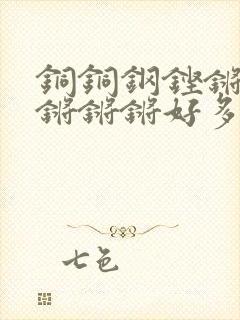 銅銅鋼鏗鏘
鏘鏘鏘好多
七色